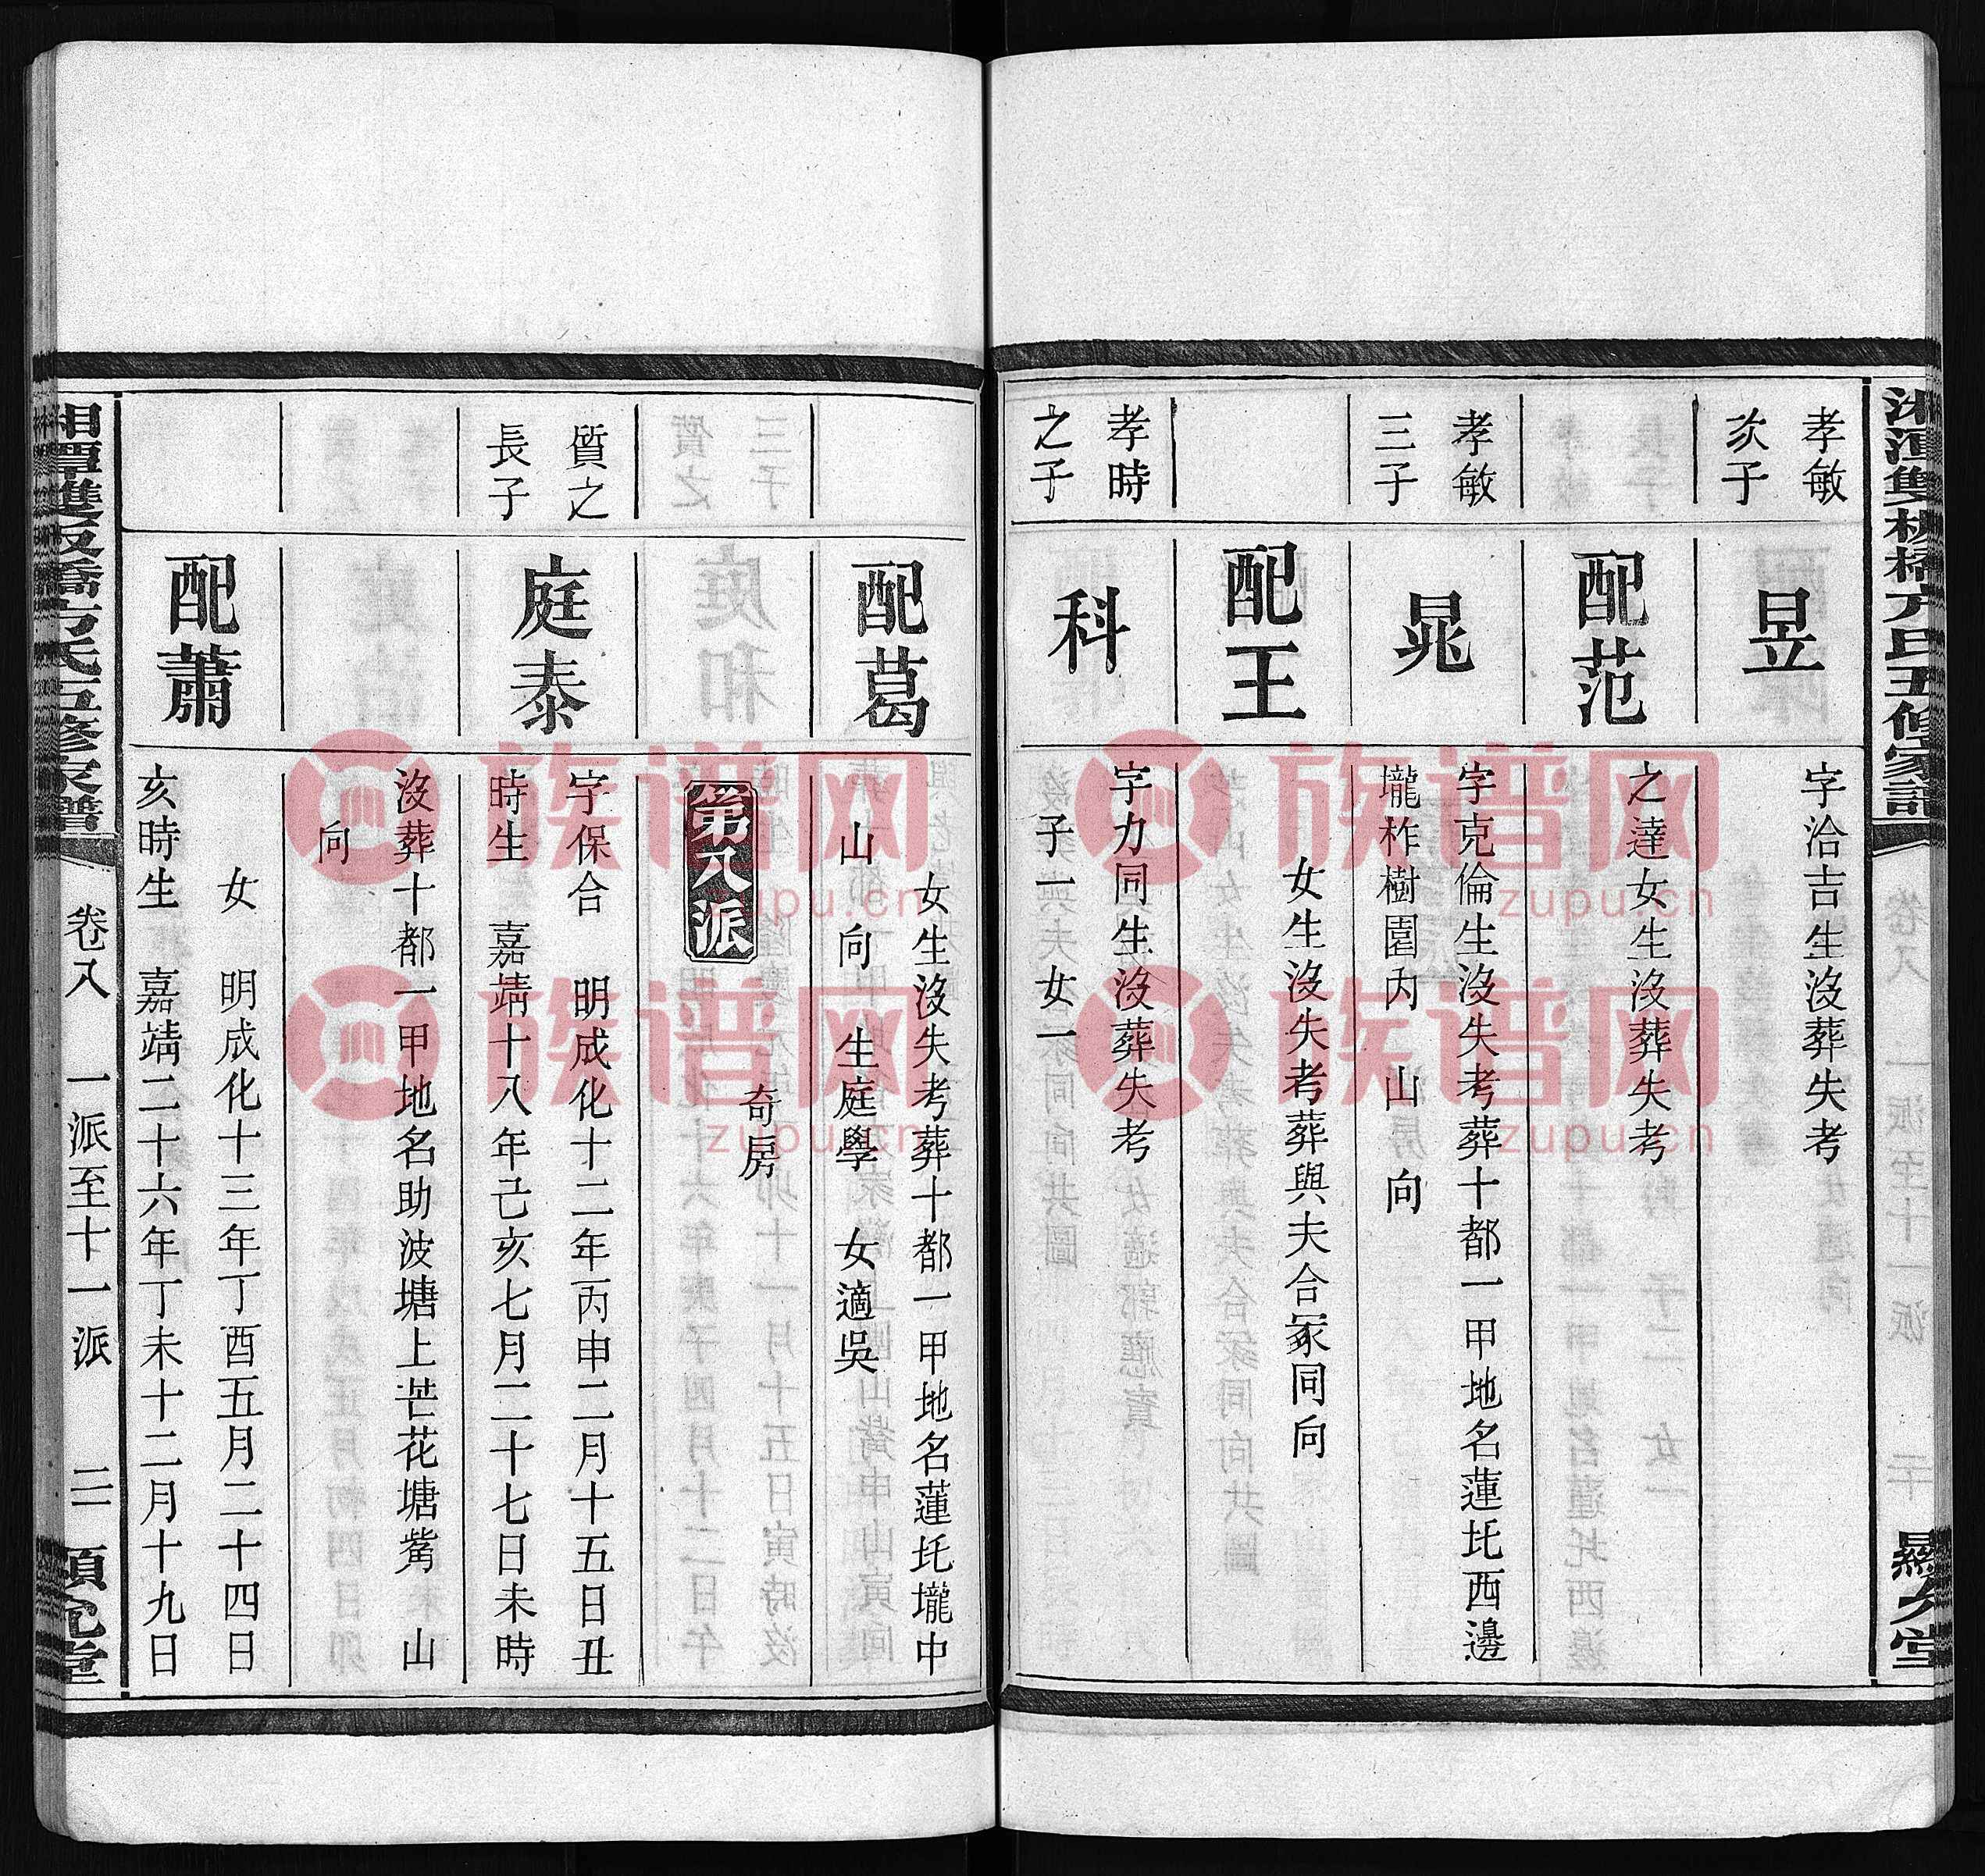 孝敏
次子
昱
字洽吉生沒葬失考
配范
之達女生沒葬失考
孝敏
三子
晁
字克倫生沒失考葬十都一甲地名蓮圫西邊
壠柞樹園內　山　向
配王
女生沒失考葬與夫合冢同向
孝時
之子
科
字力同生沒葬失考
子一　女一
配葛
女生沒失考葬十都一甲地名蓮圫壠中
山　向　生庭學　女適吳
第八派
奇房
質之
長子
庭泰
字保合　明成化十二年丙申二月十五日丑
時生　嘉靖十八年己亥七月二十七日未時
沒葬十都一甲地名助波塘上芒花塘觜　山
向
配蕭
女　明成化十三年丁酉五月二十四日
亥時生　嘉靖二十六年丁未十二月十九日
湘潭雙板橋方氏五修家譜
卷八　一派至十一派
族谱网
zupu.cn
族谱网
zupu.cn
族谱网
zupu.cn
族谱网
zupu.cn